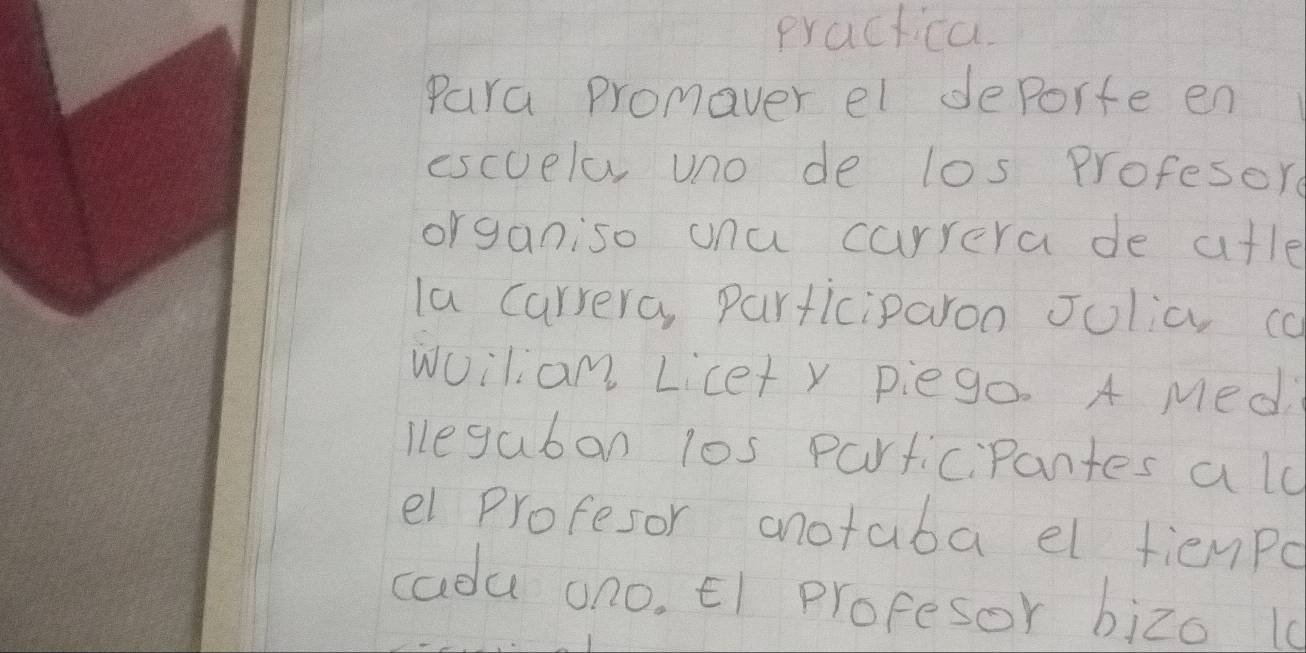 Practica.
Para Promaver el dePorte en
escuela uno de los Profesor
organiso una carrera de atle
la carrera, Participaron Julia, co
Wuiliam, Licet y Diego. A Medi
llegaban los ParticiPantes a
el Profesor anotaba el tiempo
cada uno. El Profesor bizo